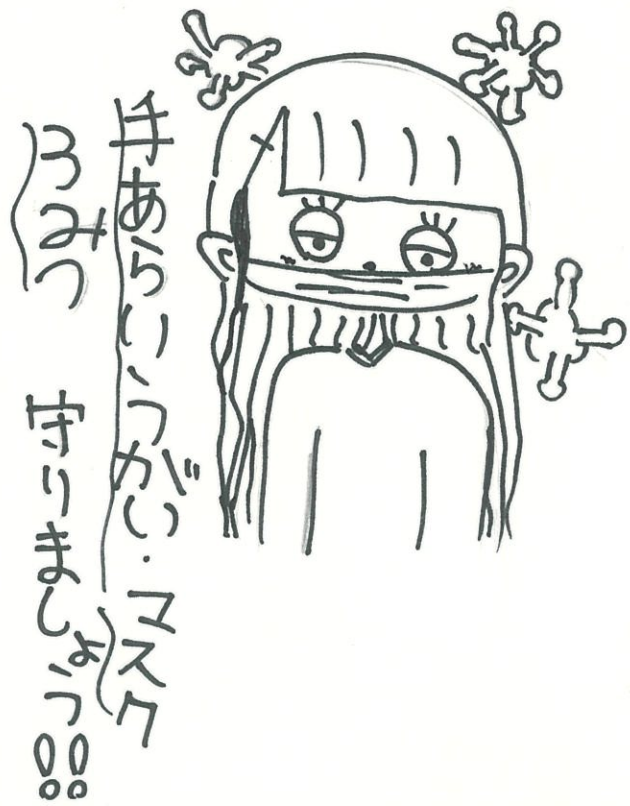 手あらい、うがい・マスク
3みつ 守りましょう!!